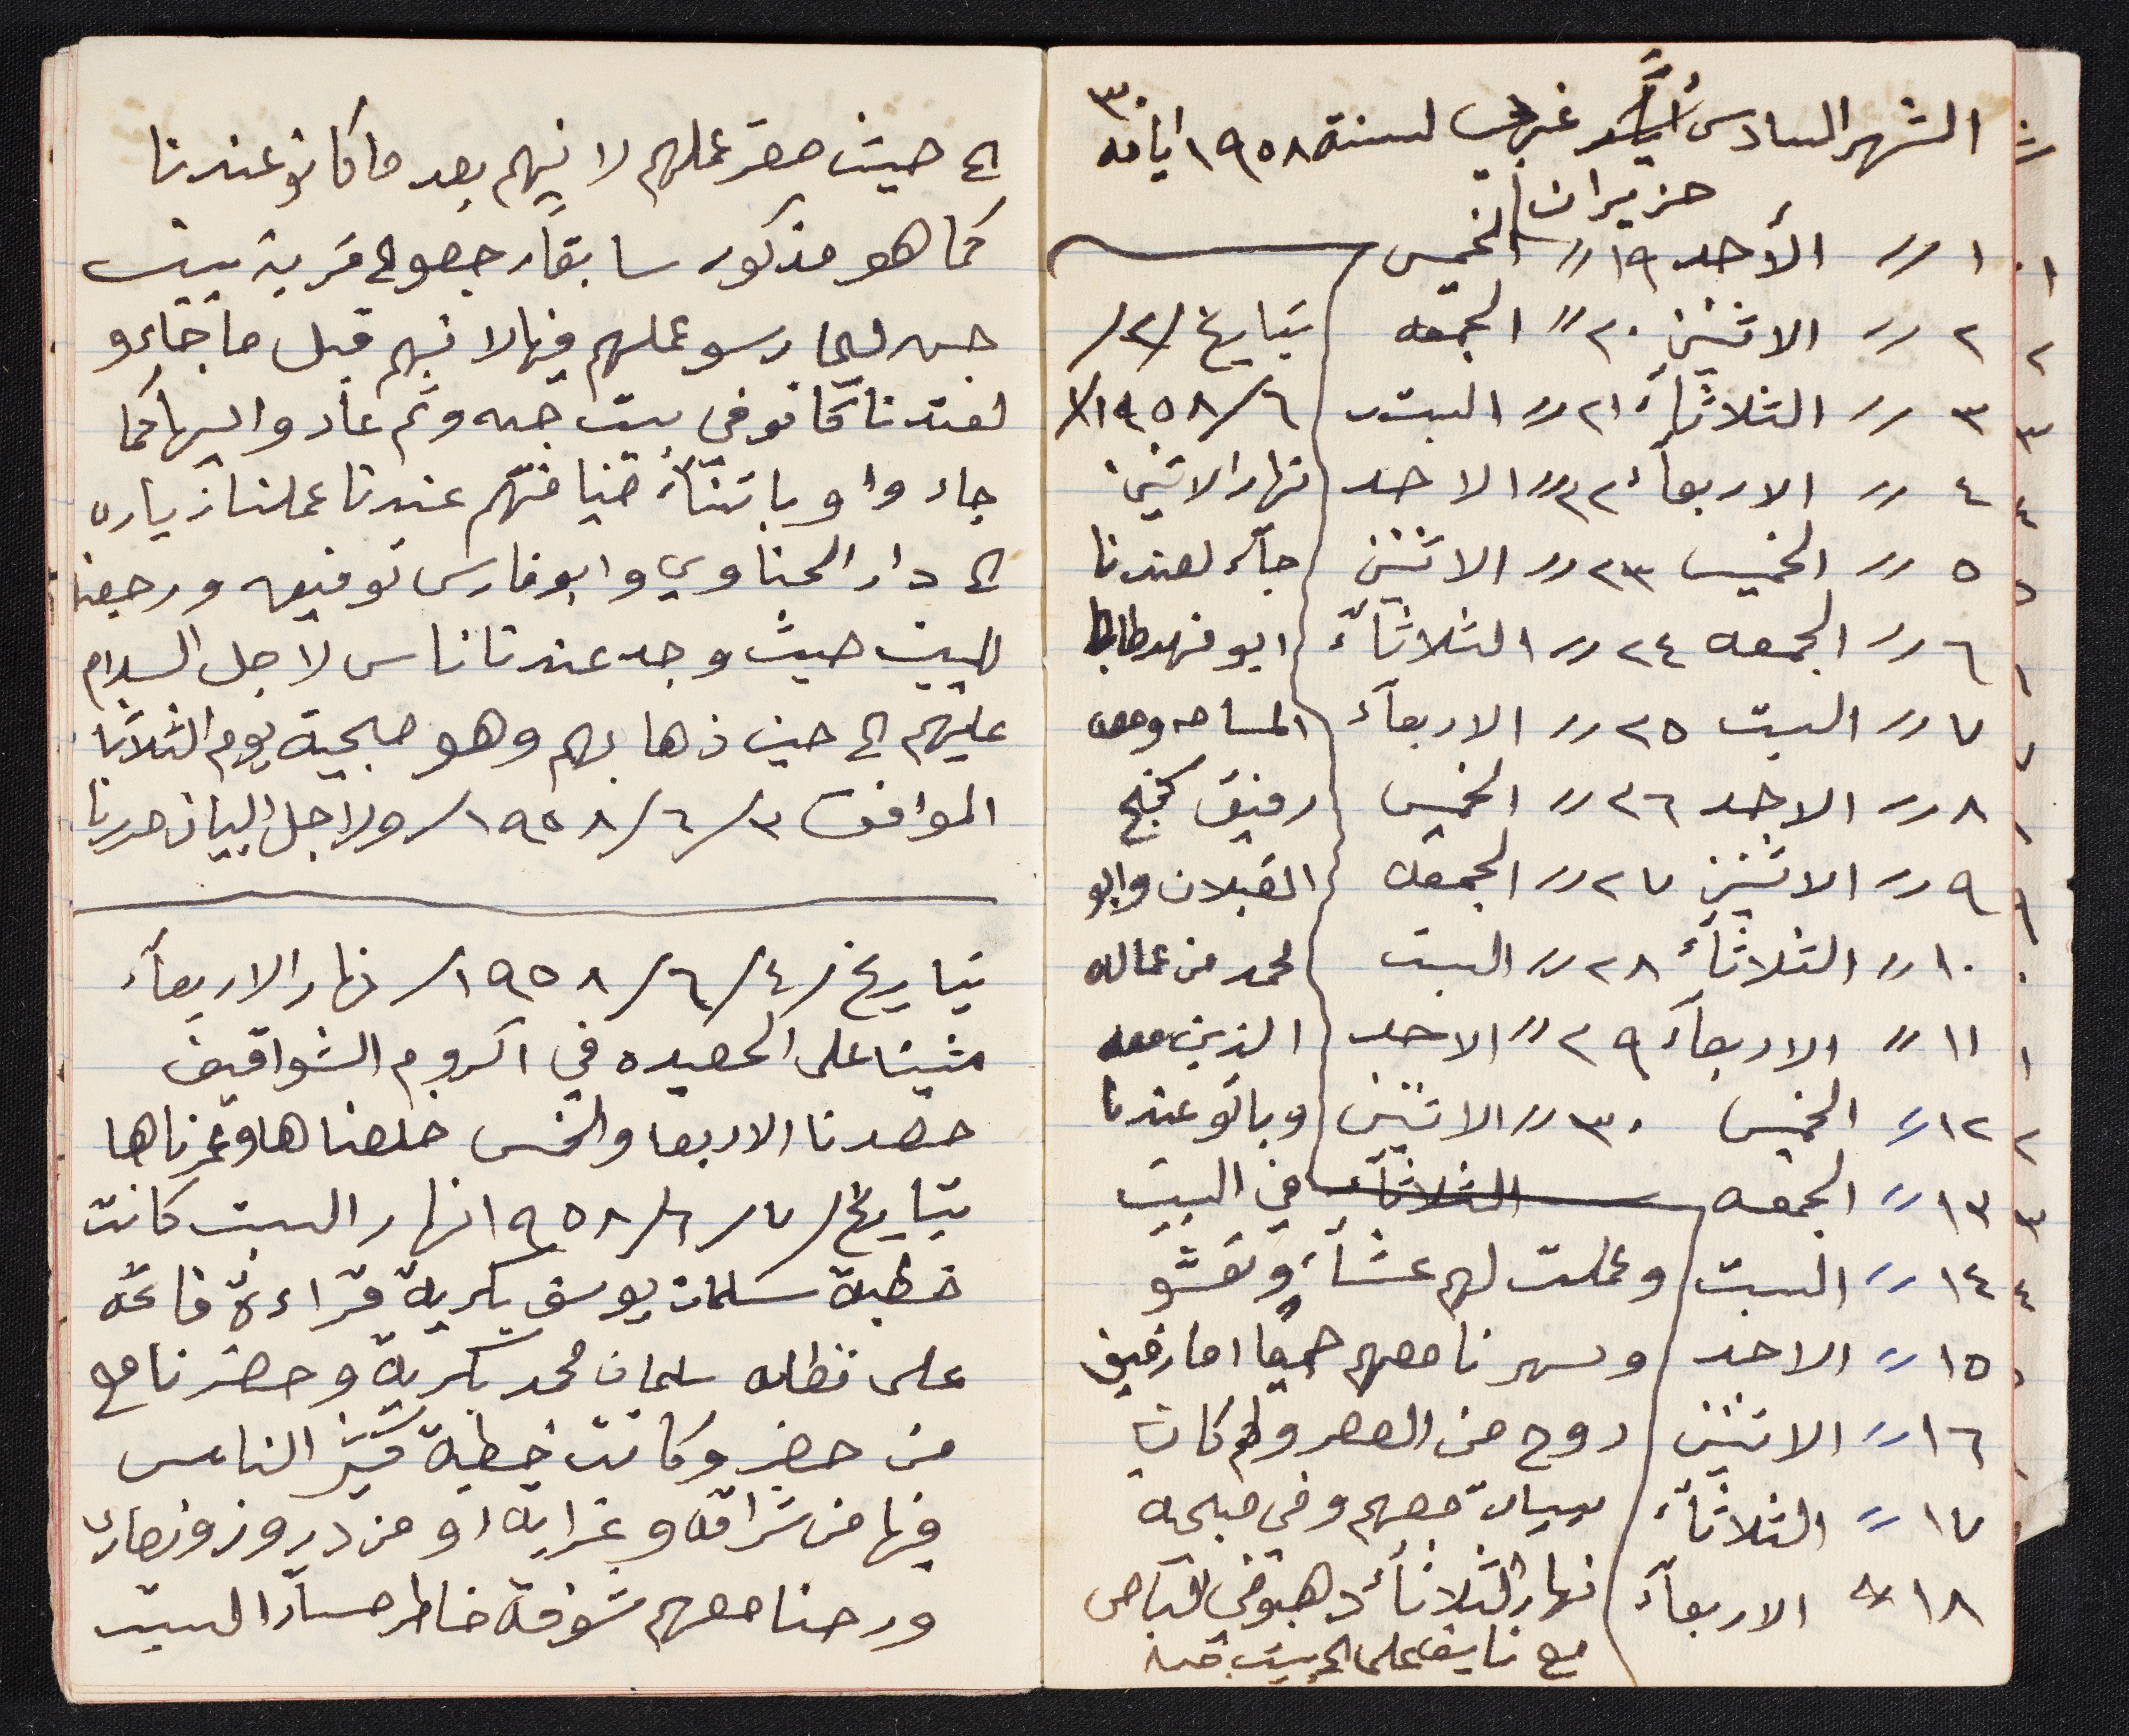 الشهر السادس غربي لسنة ١٩٥٨ ايامه ٣٠
حزيران
١ // الأحد ١٩ // الخميس
٢ // الاثنين ٢٠ // الجمعه
٣ // الثلاثاء ٢١ // السبت
٤ // الاربعاء ٢٢ // الاحد
٥ // الخميس ٢٣ // الاثنين
٦ // الجمعه ٢٤ // الثلاثاء
٧ // السبت ٢٥ // الاربعاء
٨ // الاحد ٢٦ // الخميس
٩ // الاثنين ٢٧ // الجمعه
١٠ // الثلاثاء ٢٨ // السبت
١١ // الاربعاء ٢٩ // الاحد
١٢ // الخميس ٣٠ // الاثنين
١٣ // الجمعه الثلاثاء
١٤ // السبت
١٥ // الاحد
١٦ // الاثنين
١٧ // الثلاثاء
١٨ // الاربعاء
بتاريخ /٢/
٦/١٩٥٨/
نهار الاثنين
جاء لعندنا
ابو فهد طابا
المساحه ومعه
رفيق
القبلان وابو
محمد من عماله
الذين معه
وباتو عندنا
في البيت
وعملت لهم عشاء وتعشو
وسهرنا معهم جميعا اما رفيق
روح من العصر ولم كان
بسيارة معهم وفي صبحية
نهار الثلاثاء ذهبو في الباص
مع نايف علم الى بيت جنه
الى حيث مقر عملهم لانهم بعد ما كانو عندنا
كما هو مذكور سابقاً رجعو الى قرية بيت
جنه ليمارسو عملهم فيها لانهم قبل ما جاءو
لعندنا كانو في بيت جنه وثم عادوا اليها كما
جاءوا وباثناء ضيافتهم عندنا عملنا زياره
الى دار الحناوي وابو فارس توفيق ورجعنا
للبيت حيث وجد عندنا ناس لاجل السلام
عليهم الى حين ذهابهم وهو صبحية يوم الثلاثا
الموافق ٣/٦/١٩٥٨/ ولاجل البيان حررنا
بتاريخ /٤/٦/١٩٥٨/ نهار الاربعاء
مشينا على الحصيده في اكروم الشواقيف
حصدنا الاربعا والخمس خلصناها وغمرناها
بتاريخ /٧/٦/١٩٥٨ نهار السبت كانت
خطبة سلمان يوسف بكرية قراءة فاتحه
على سلمان محمد بكرية وحضرنا مع
من حضر وكانت خطبة كثير الناس
فيها من شراقه وغرابه او من دروز ونصارى
ورحنا معهم شوفة خاطر مساءً السبت